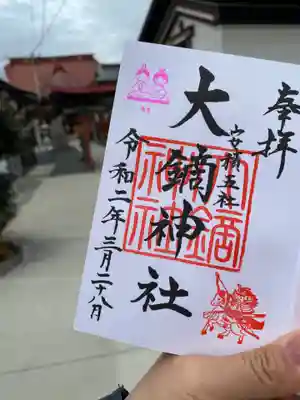 奉拝
安積五社
大鏑神社
令和二年三月二十八日